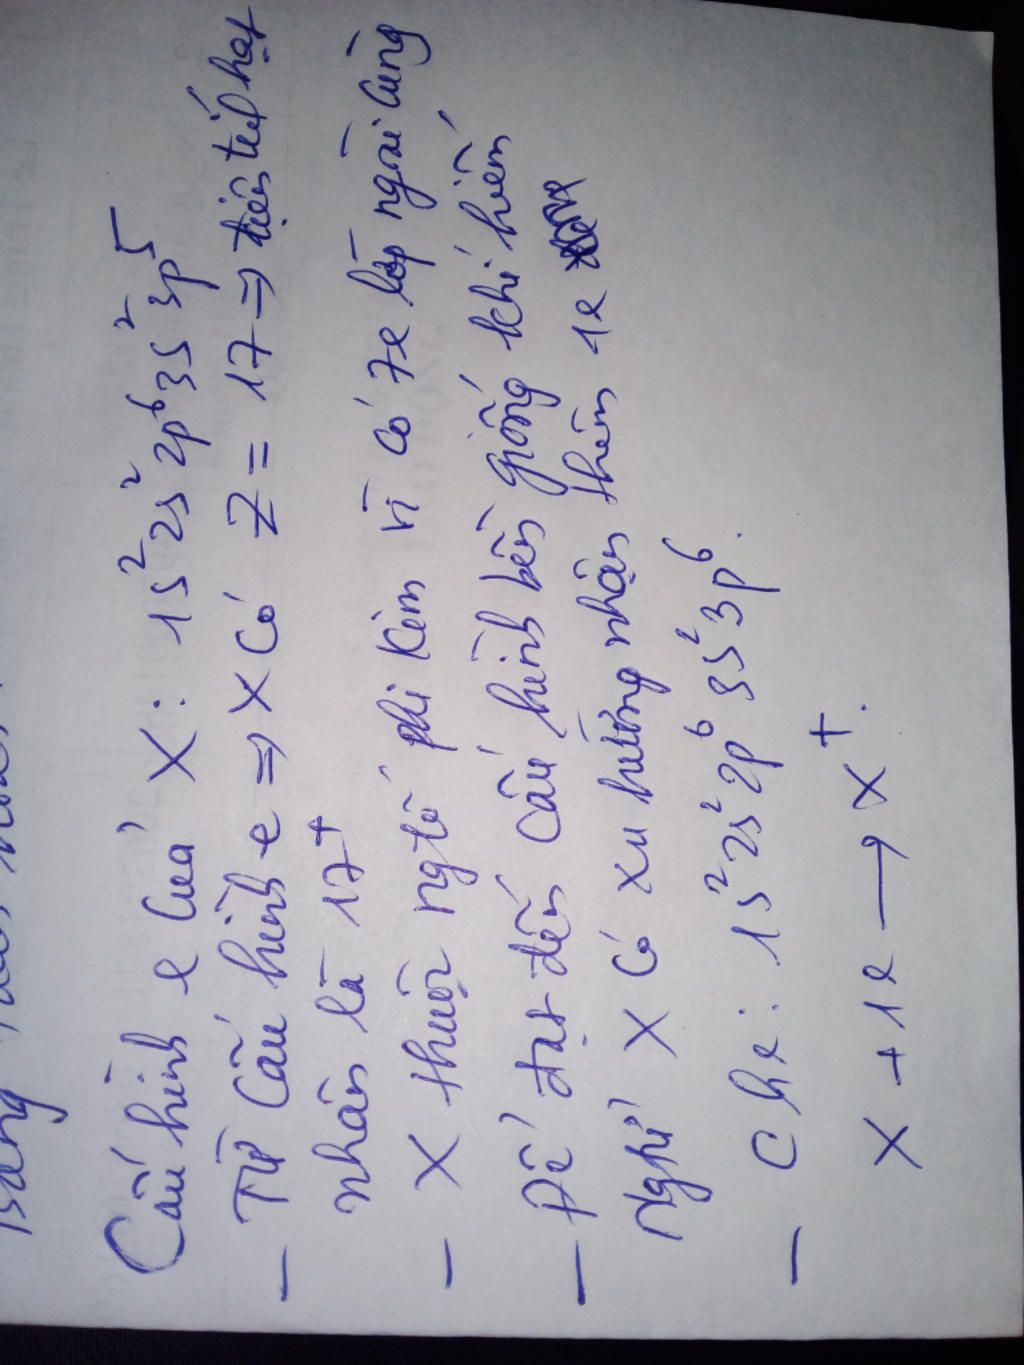 Cấu hình e của X: 1s² 2s² 2p⁶ 3s² 3p⁵
– Từ cấu hình e ⇒ X có Z = 17 ⇒ điện tích hạt
nhân là 17+
– X thuộc ng tố phi kim vì có 7e lớp ngoài cùng
– Để đạt đến cấu hình bền giống khí hiếm
Nghĩ X có xu hướng nhận thêm 1e
– Che: 1s² 2s² 2p⁶ 3s² 3p⁶.
X + 1e → X⁺.